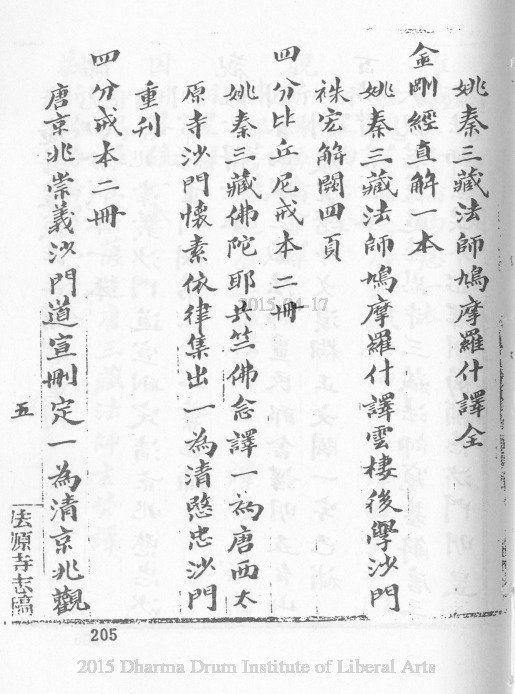 姚秦三藏法師鳩摩羅什譯全
金剛經直解一本
姚秦三藏法師鳩摩羅什譯雲棲後學沙門
祩宏解闕四頁
四分比丘尼戒本二冊
姚秦三藏佛陀耶共竺佛念譯一為唐西太
原寺沙門懷素依律集出一為清愍忠沙門
重刊
四分戒本二冊
唐京兆崇義沙門道宣刪定一為清京兆觀
五
法源寺志稿
205
2015-04-17
2015 Dharma Drum Institute of Liberal Arts